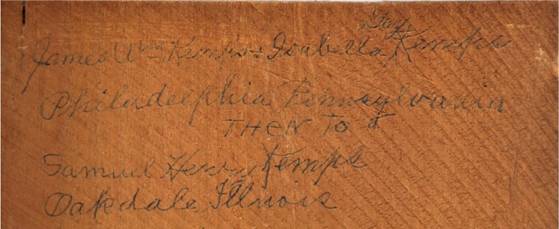 Gay
James Wm Kemps + Isabella Kemple
Philadeelphia Pennsylvania
THEN TO
Samuel Henry Kemple
Oakdale Illinois